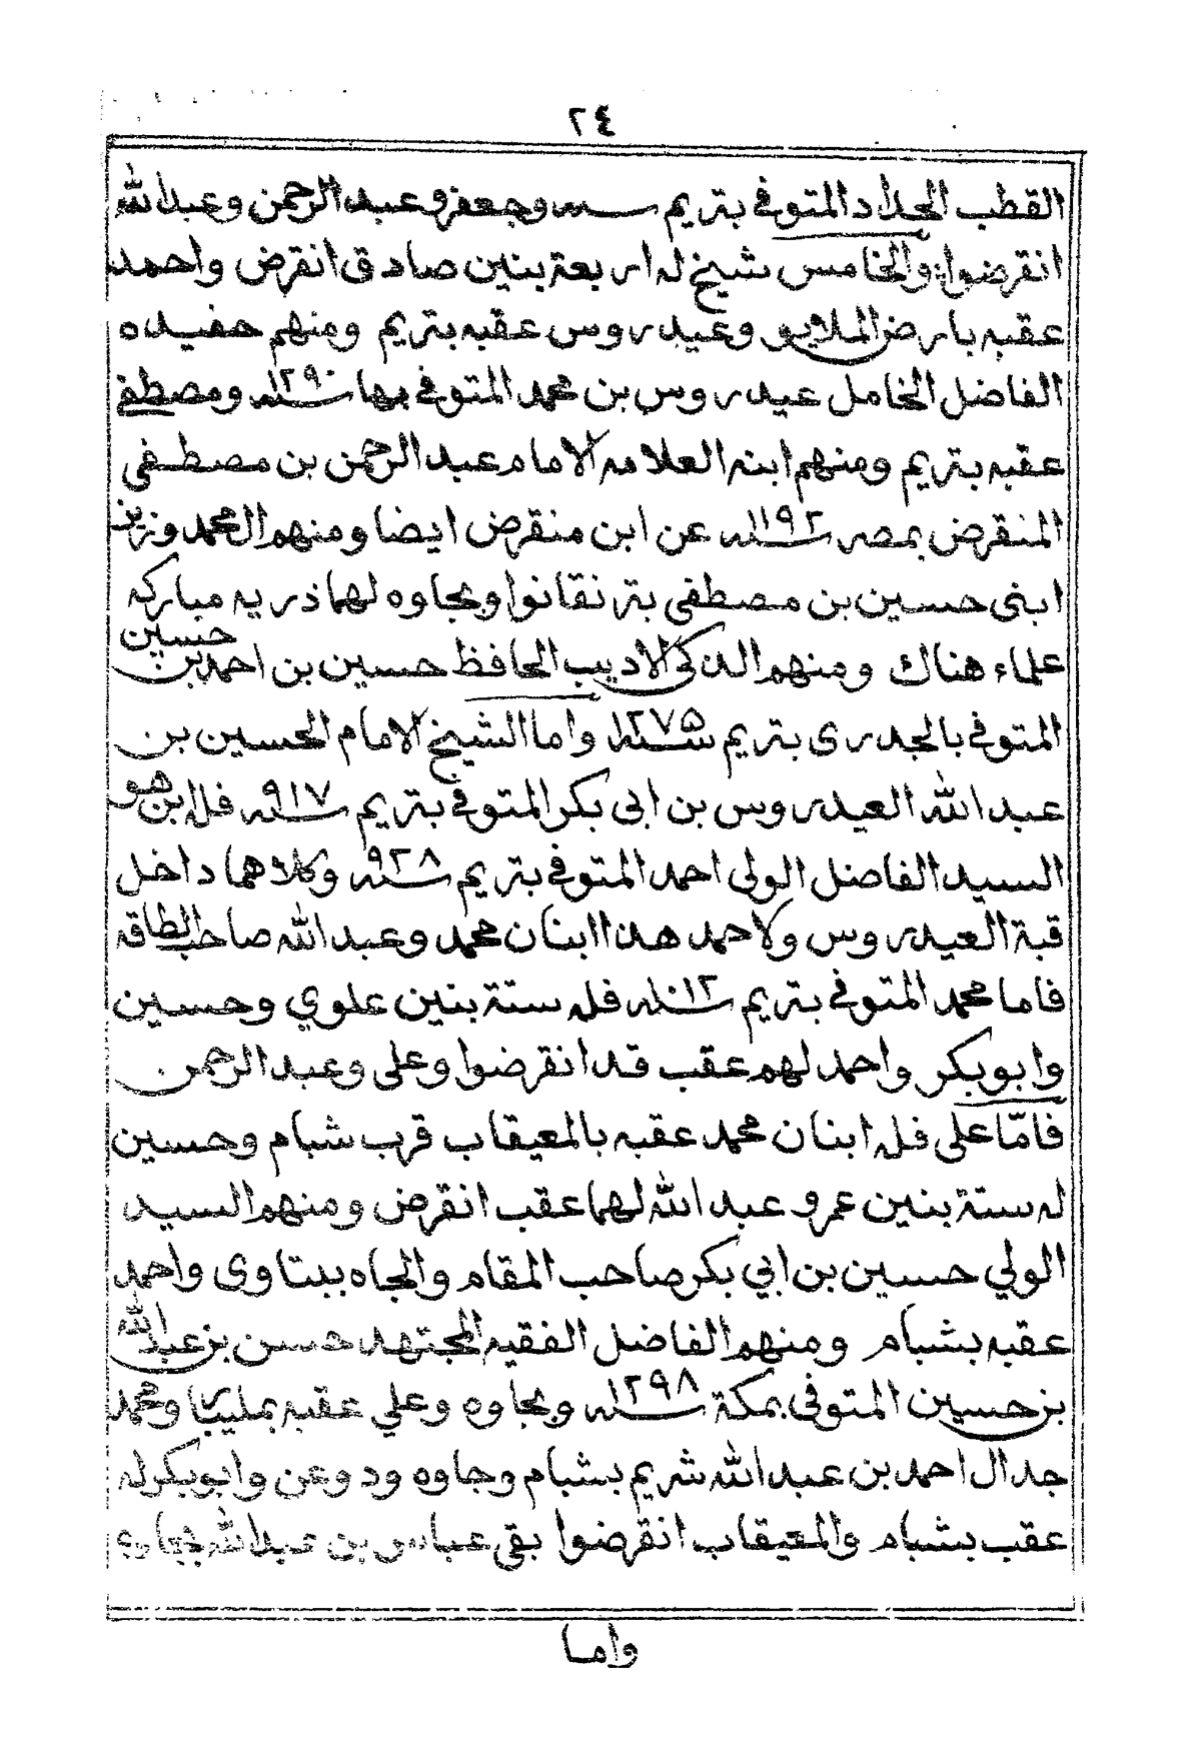 ٢٤
القطب الحداد المتوفي بتريم سنه وجعفر وعبد الرحمن وعبد الله
انقرضوا والخامس شيخ له اربعة بنين صادق انقرض واحمد
عقبه بارض الملايو وعيدروس عقبه بتريم ومنهم حفيده
الفاضل الخامل عيدروس بن محمد المتوفي بها سنه ١٢٩٠ ومصطفى
عقبه بتريم ومنهم ابنه العلامه الامام عبد الرحمن بن مصطفى
المنقرض بمصر سنه ١١٩٢ عن ابن منقرض ايضا ومنهم ال محمد وزين
ابنى حسين بن مصطفى بترنقانوا وبجاوه لهما ذريه مباركه
علماء هناك ومنهم الذكى الاديب الحافظ حسين بن احمد بن حسين
المتوفي بالجدرى بتريم سنه ١٢٧٥ واما الشيخ الامام الحسين بن
عبد الله العيدروس بن ابى بكر المتوفي بتريم سنه ٩١٧ فله ابن هو
السيد الفاضل الولى احمد المتوفي بتريم سنه ٩٢٨ وكلاهما داخل
قبة العيدروس ولاحمد هذا ابنان محمد وعبد الله صاحب الطاقه
فاما محمد المتوفي بتريم سنه ١٠١٢ فله ستة بنين علوي وحسين
وابوبكر واحمد لهم عقب قد انقرضوا وعلى وعبد الرحمن
فامّا على فله ابنان محمد عقبه بالمعيقاب قرب شبام وحسين
له ستة بنين عمر وعبد الله لهما عقب انقرض ومنهم السيد
الولي حسين بن ابي بكر صاحب المقام والجاه ببتاوى واحمد
عقبه بشبام ومنهم الفاضل الفقيه المجتهد حسن بن عبد الله
بن حسين المتوفى بمكة سنه ١٢٩٨ وبجاوه وعلي عقبه بمليبا ومحمد
جد ال احمد بن عبد الله شريم بشبام وجاوه ودوعن وابوبكر له
عقب بشبام والمعيقاب انقرضوا بقى عباس بن عبد الله بجاوه
واما